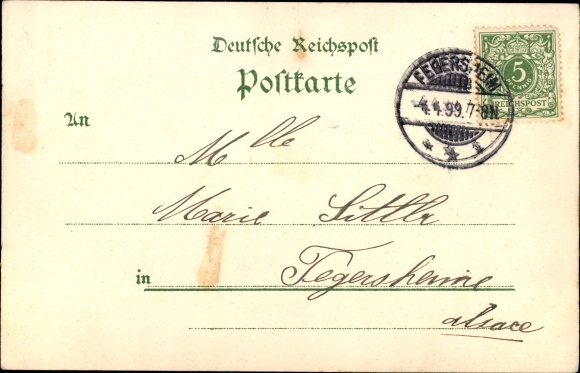 Deutsche Reichspost
Postkarte
5
REICHSPOST
FEGERSHEIM
-4.4.99.7-8N
An
Mlle
Marie Sittler
in Fegersheim
alsace